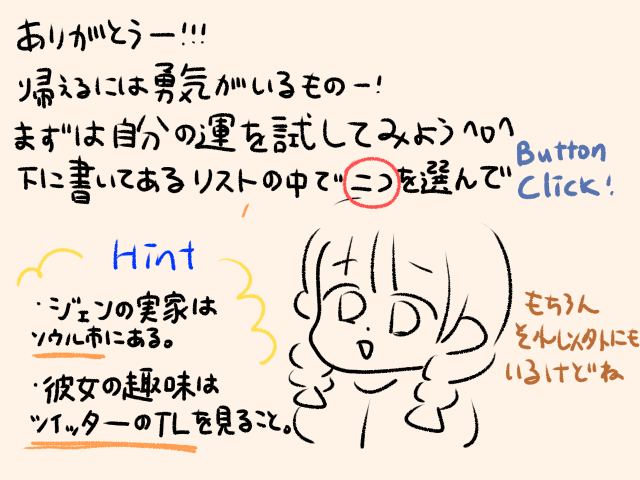 ありがとうー!!!
帰えるには勇気がいるものー!
まずは自分の運を試してみよう^o^
下に書いてあるリストの中で二つを選んで
Button
Click!
Hint
・ジェンの実家は
ソウル市にある。
・彼女の趣味は
ツイッターのTLを見ること。
もちろん
それ以外にも
いるけどね